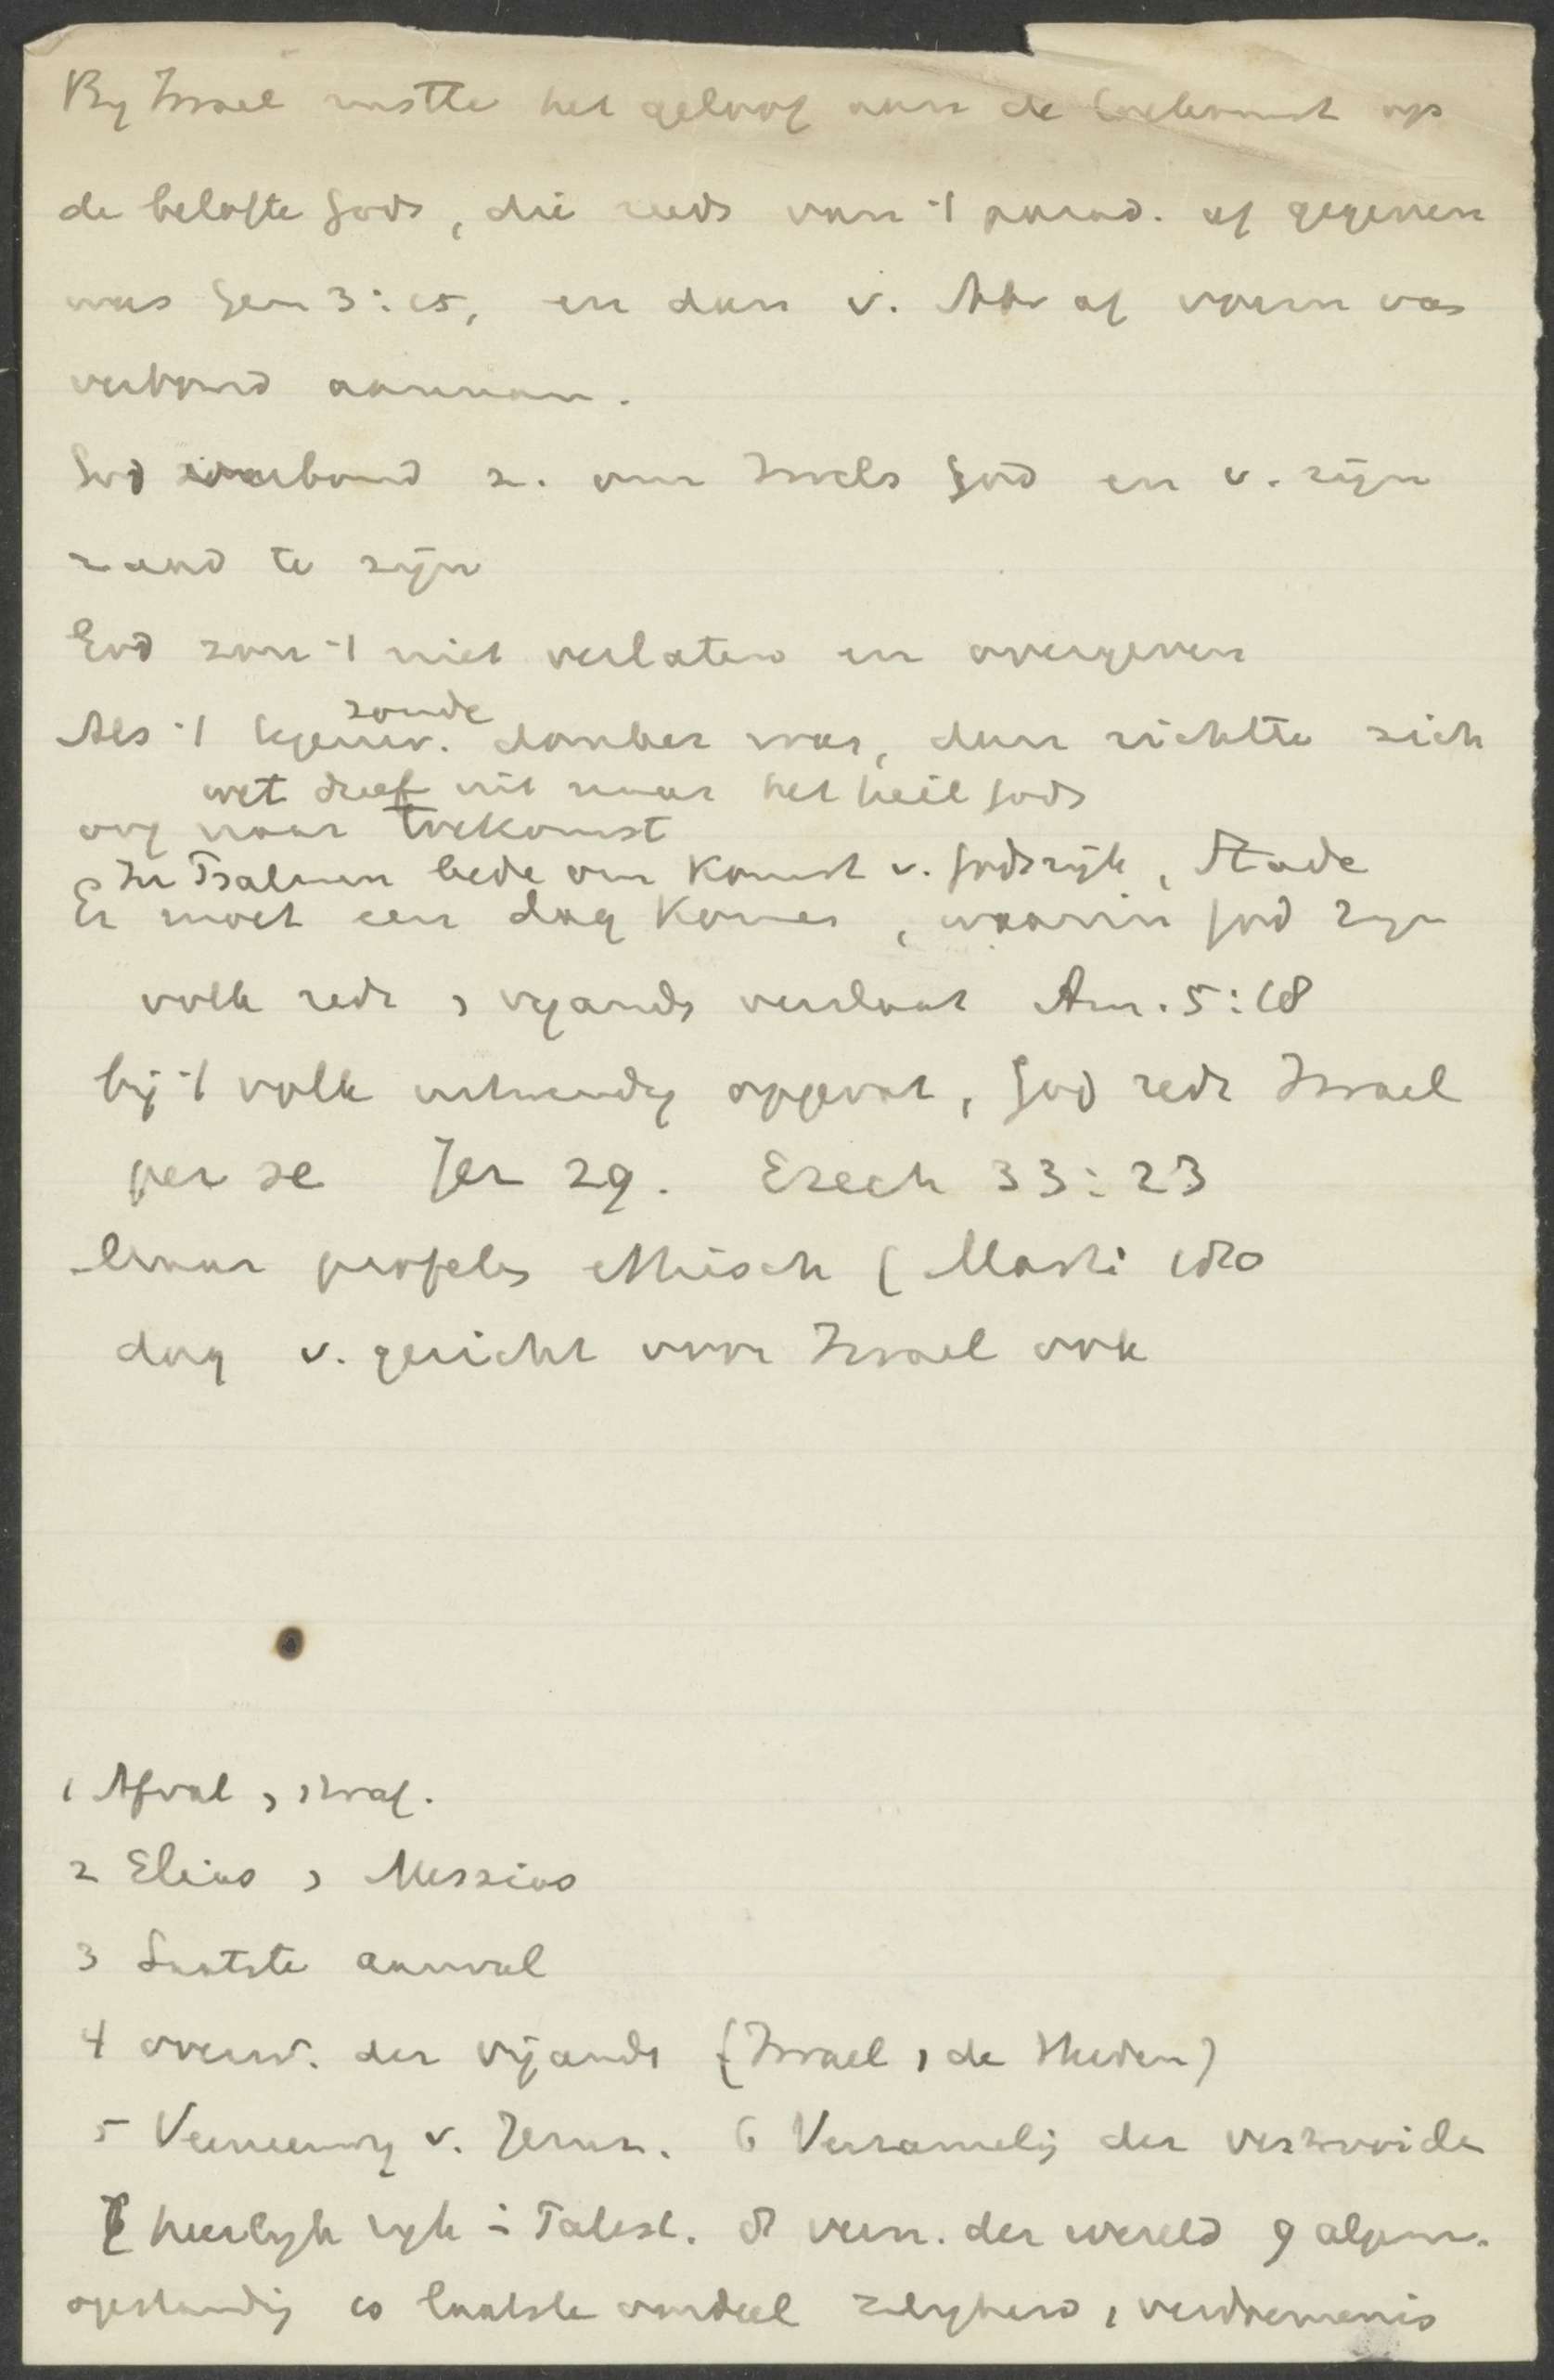 By Israel rustte het geloof aan de toekomst op
de belofte Gods, die reeds van 't parad. af gegeven
was Gen 3:15, en dan v. Abr af vorm van
verbond aannam.
God verbond z. om Israels God en v. zijn
zaad te zijn
God zou 't niet verlaten en overgeven
zonde
Als 't tgenw. donker was, dan richtte zich
wet dreef uit naar het heil Gods
oog naar toekomst
In Psalmen bede om komst v. Godsrijk, Stade
Er moet een dag komen, waarin God zyn
volk redt, vyands verslaat Am. 5:18
bij 't volk uitwendig opgevat, God redt Israel
per se Jer 29. Ezech 33:23
maar profets ethisch (Marti 180
dag v. gericht voor Israel ook
1 Afval, straf.
2 Elias, Messias
3 Laatste aanval
4 overw. der vijands (Israel, de Heiden)
5 Vernieuwing v. Jeruz. 6 Verzamelg der verstrooide
7 heerlyk ryk i Palest. 8 vern. der wereld 9 algem.
opstandig 10 laatste oordeel zaligheid, verdoemenis